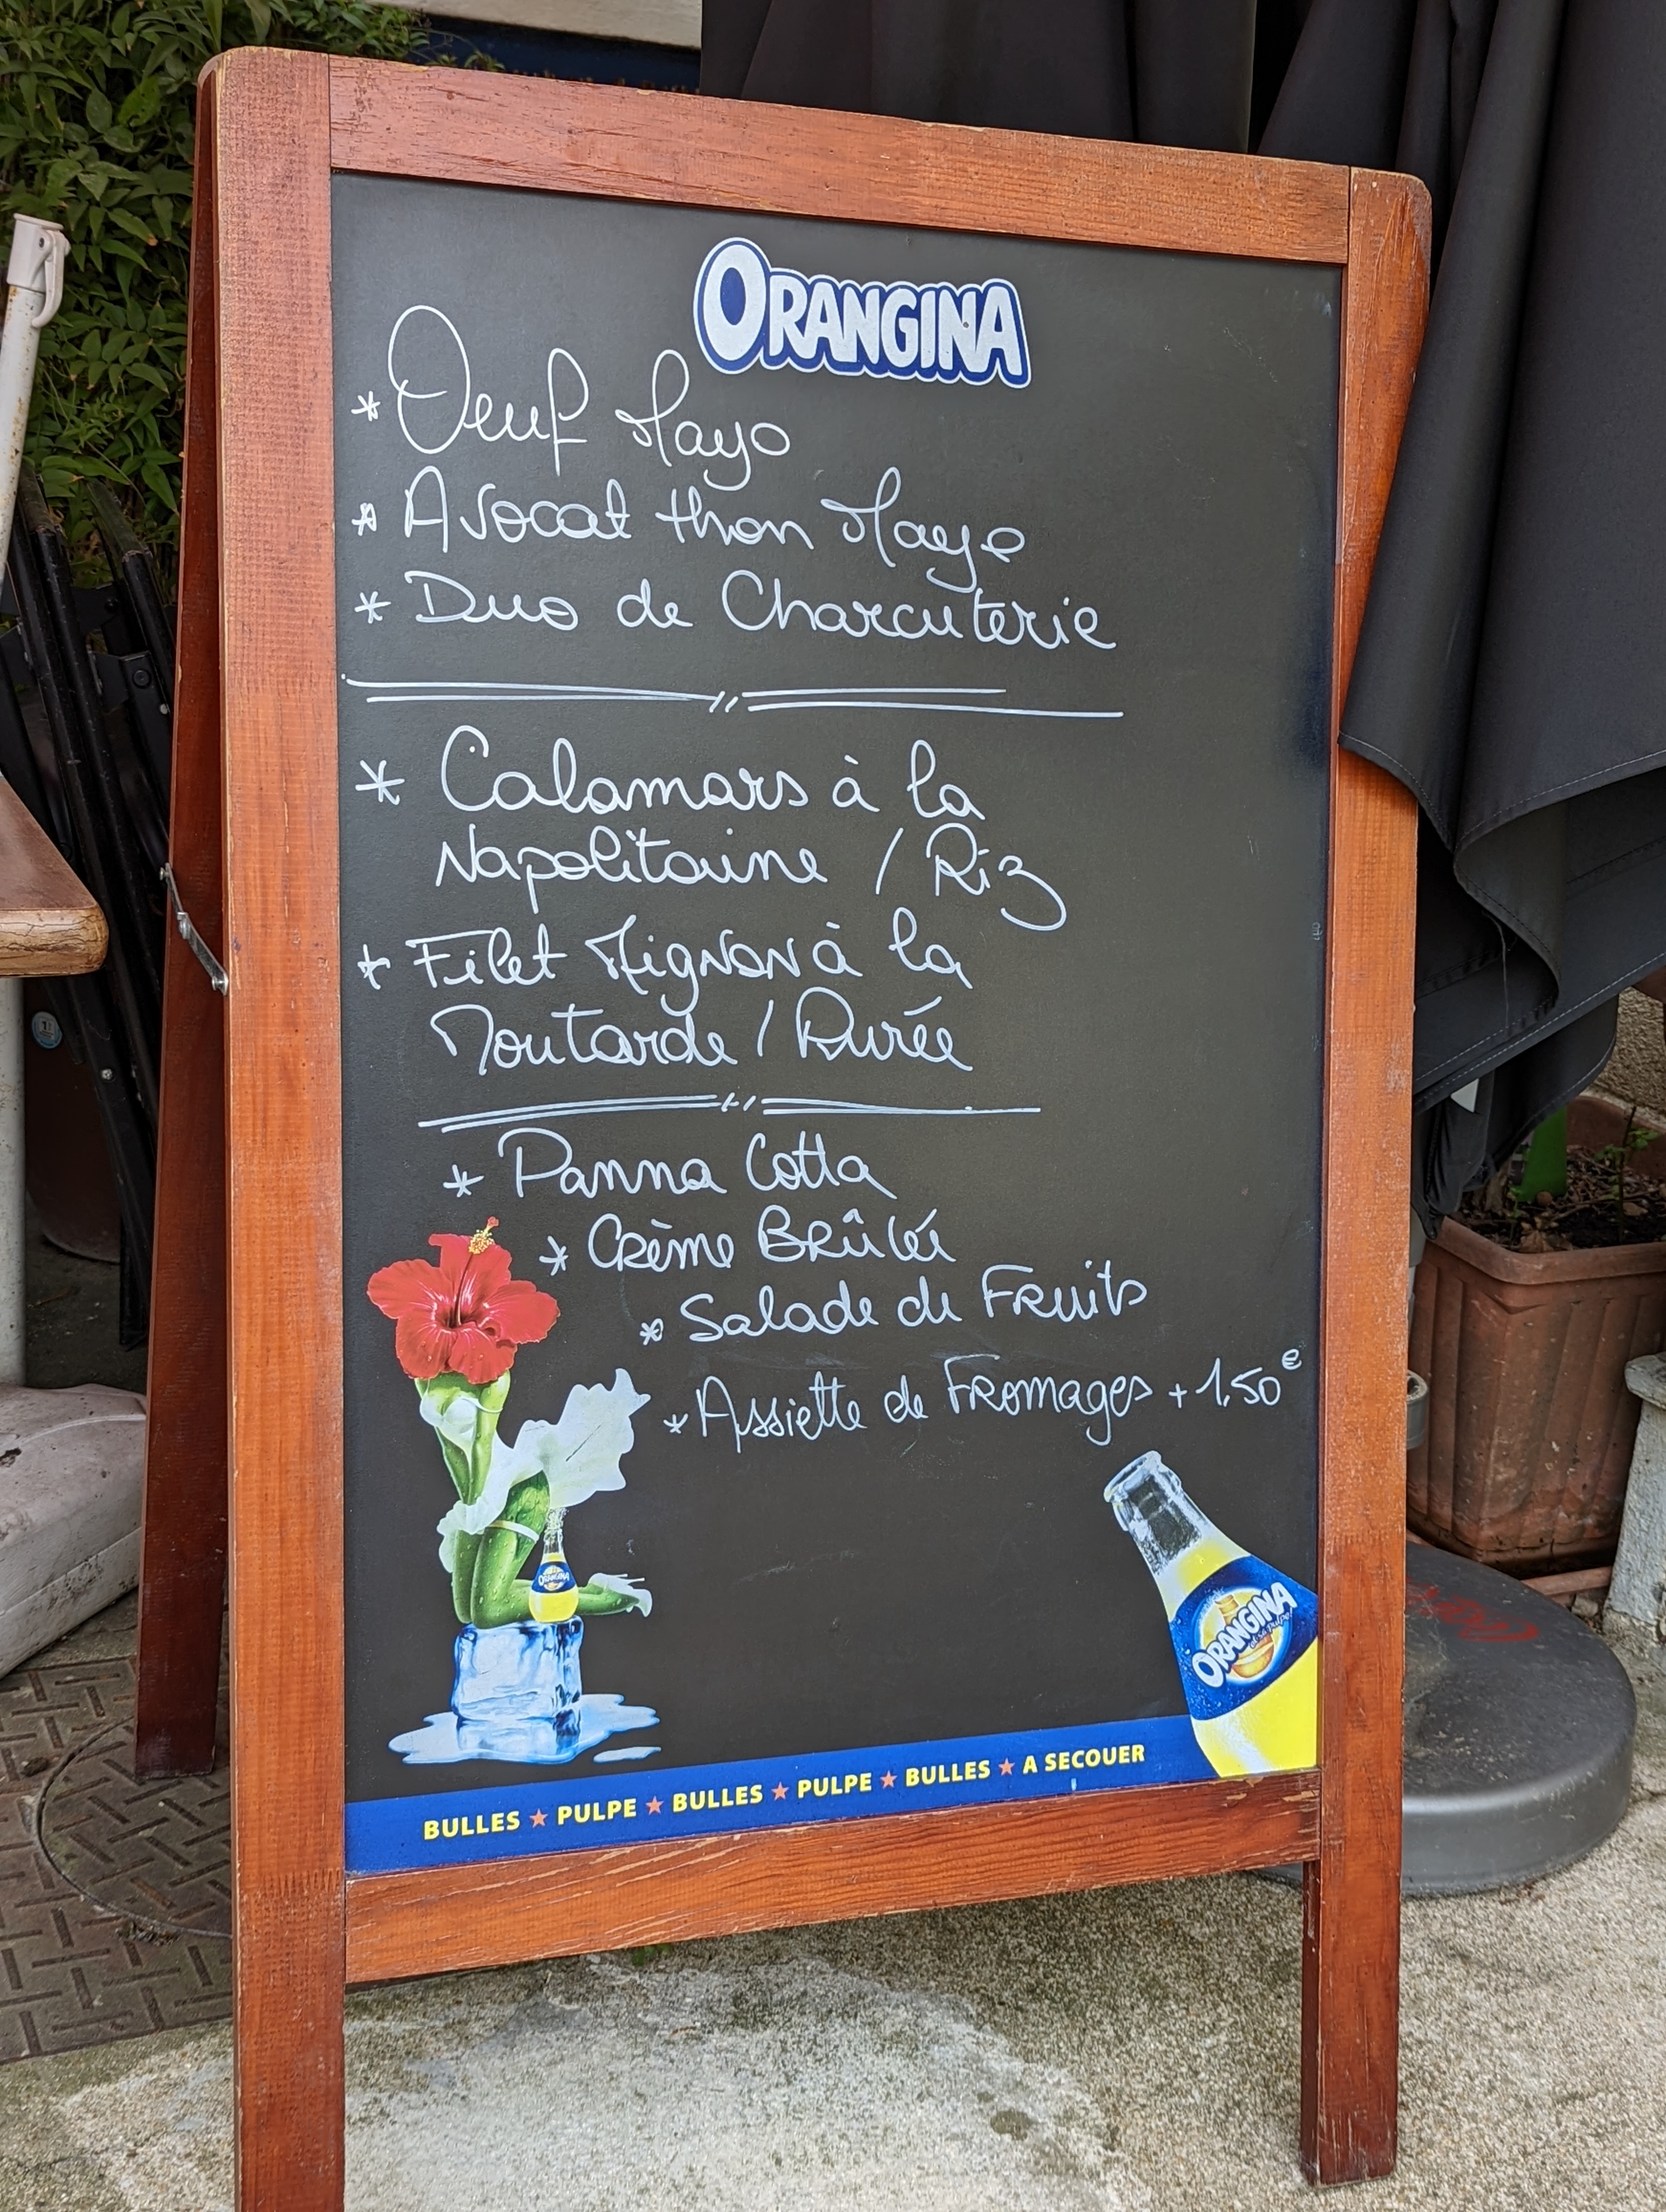 ORANGINA
* Oeuf Mayo
* Avocat thon Mayo
* Duo de Charcuterie
* Calamars à la
Napolitaine / Riz
* Filet Mignon à la
Moutarde / Purée
* Panna Cotta
* Crème Brûlée
* Salade de Fruits
* Assiette de Fromages + 1.50€
ORANGINA
ORANGINA
BULLES ★ PULPE ★ BULLES ★ PULPE ★ BULLES ★ A SECOUER